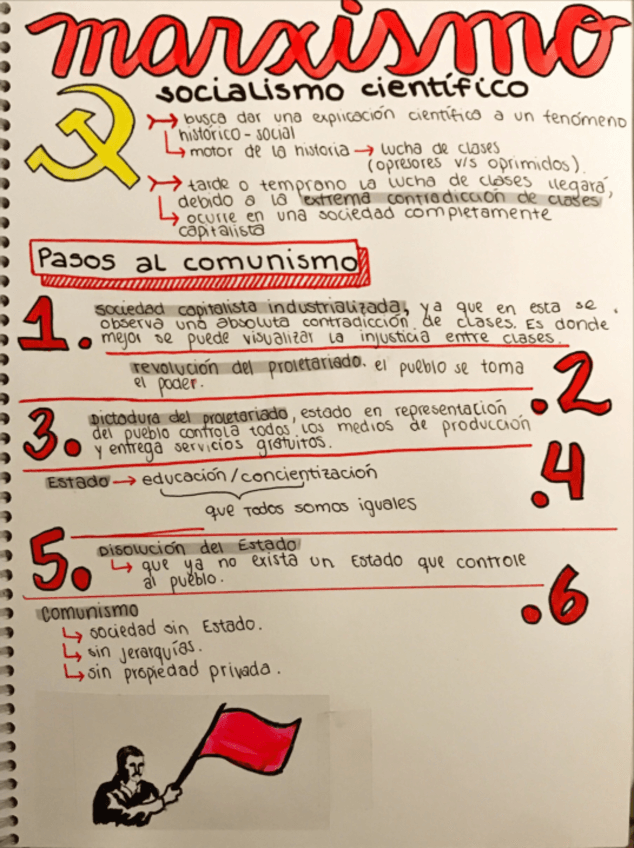 marxismo
socialismo científico
busca dar una explicación científica a un fenómeno
histórico-social
motor de la historia → lucha de clases
(opresores v/s oprimidos).
tarde o temprano la lucha de clases llegará,
debido a la extrema contradicción de clases
ocurre en una sociedad completamente
capitalista
Pasos al comunismo
1. sociedad capitalista industrializada, ya que en esta se
observa una absoluta contradicción de clases. Es donde
mejor se puede visualizar la injusticia entre clases.
.2
revolución del proletariado. el pueblo se toma
el poder.
3. Dictadura del proletariado, estado en representación
del pueblo controla todos los medios de producción
y entrega servicios gratuitos.
.4
Estado → educación/concientización
que todos somos iguales
5. Disolución del Estado
que ya no exista un Estado que controle
al pueblo.
.6
Comunismo
sociedad sin Estado.
sin jerarquías.
sin propiedad privada.